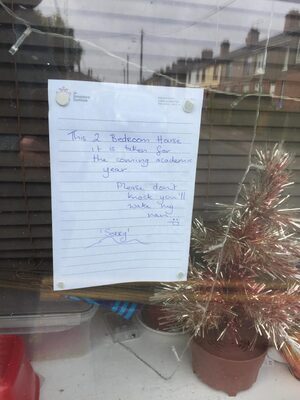 This 2 Bedroom House
it is taken for
the coming academic
year
Please don't
knock you'll
wake my
nan
'Sorry'